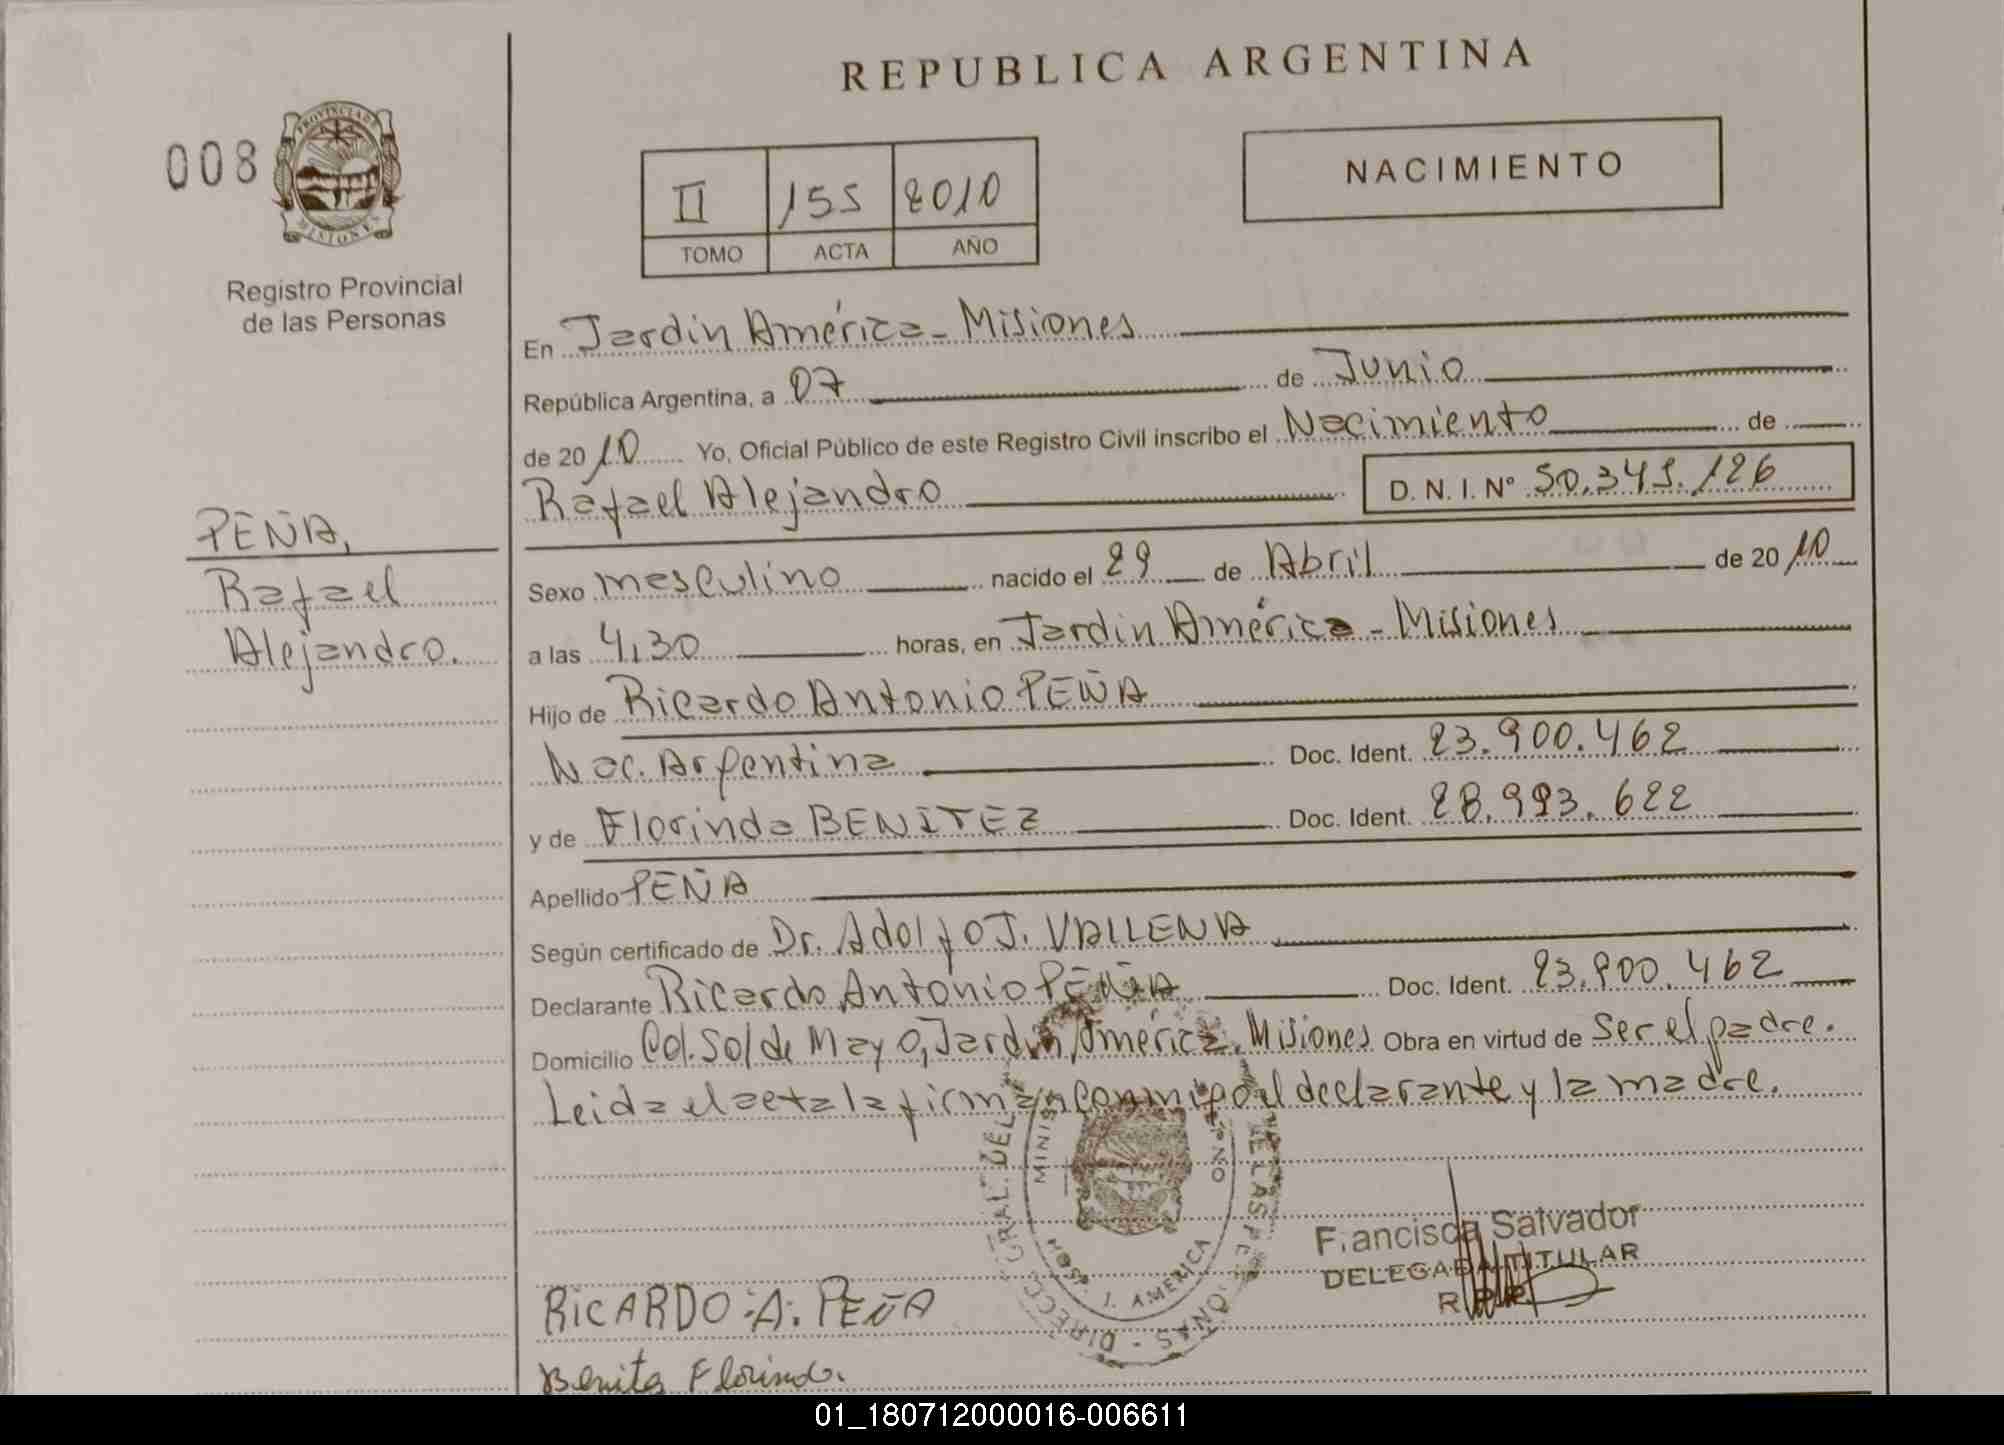 REPUBLICA ARGENTINA
008
PROVINCIA DE
MISIONES
Registro Provincial
de las Personas
II 155 2010
TOMO ACTA AÑO
NACIMIENTO
En Jardín América - Misiones
República Argentina, a 07 de Junio
de 2010 Yo, Oficial Público de este Registro Civil inscribo el Nacimiento de
Rafael Alejandro D.N.I. Nº 50.345.126
PEÑA,
Rafael
Alejandro.
Sexo masculino nacido el 29 de Abril de 2010
a las 4,30 horas, en Jardín América - Misiones
Hijo de Ricardo Antonio PEÑA
Nac. Argentina Doc. Ident. 23.900.462
y de Florinda BENITEZ Doc. Ident. 28.993.622
Apellido PEÑA
Según certificado de Dr. Adolfo J. VALLENA
Declarante Ricardo Antonio PEÑA Doc. Ident. 23.900.462
Domicilio Col. Sol de Mayo, Jardín América, Misiones Obra en virtud de Ser el padre.
Leida el acta la firman conmigo el declarante y la madre.
Francisca Salvador
DELEGADA TITULAR
R.P.P.
J. AMERICA
RICARDO A. PEÑA
Benitez Florinda.
01_180712000016-006611